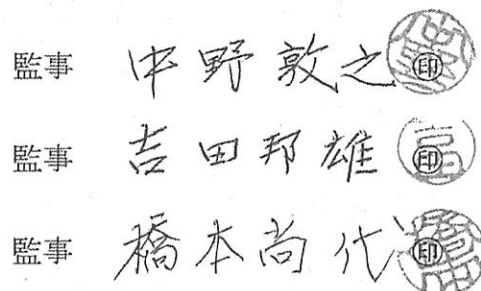 監事 中野敦之 印
監事 吉田邦雄 印
監事 橋本尚代 印